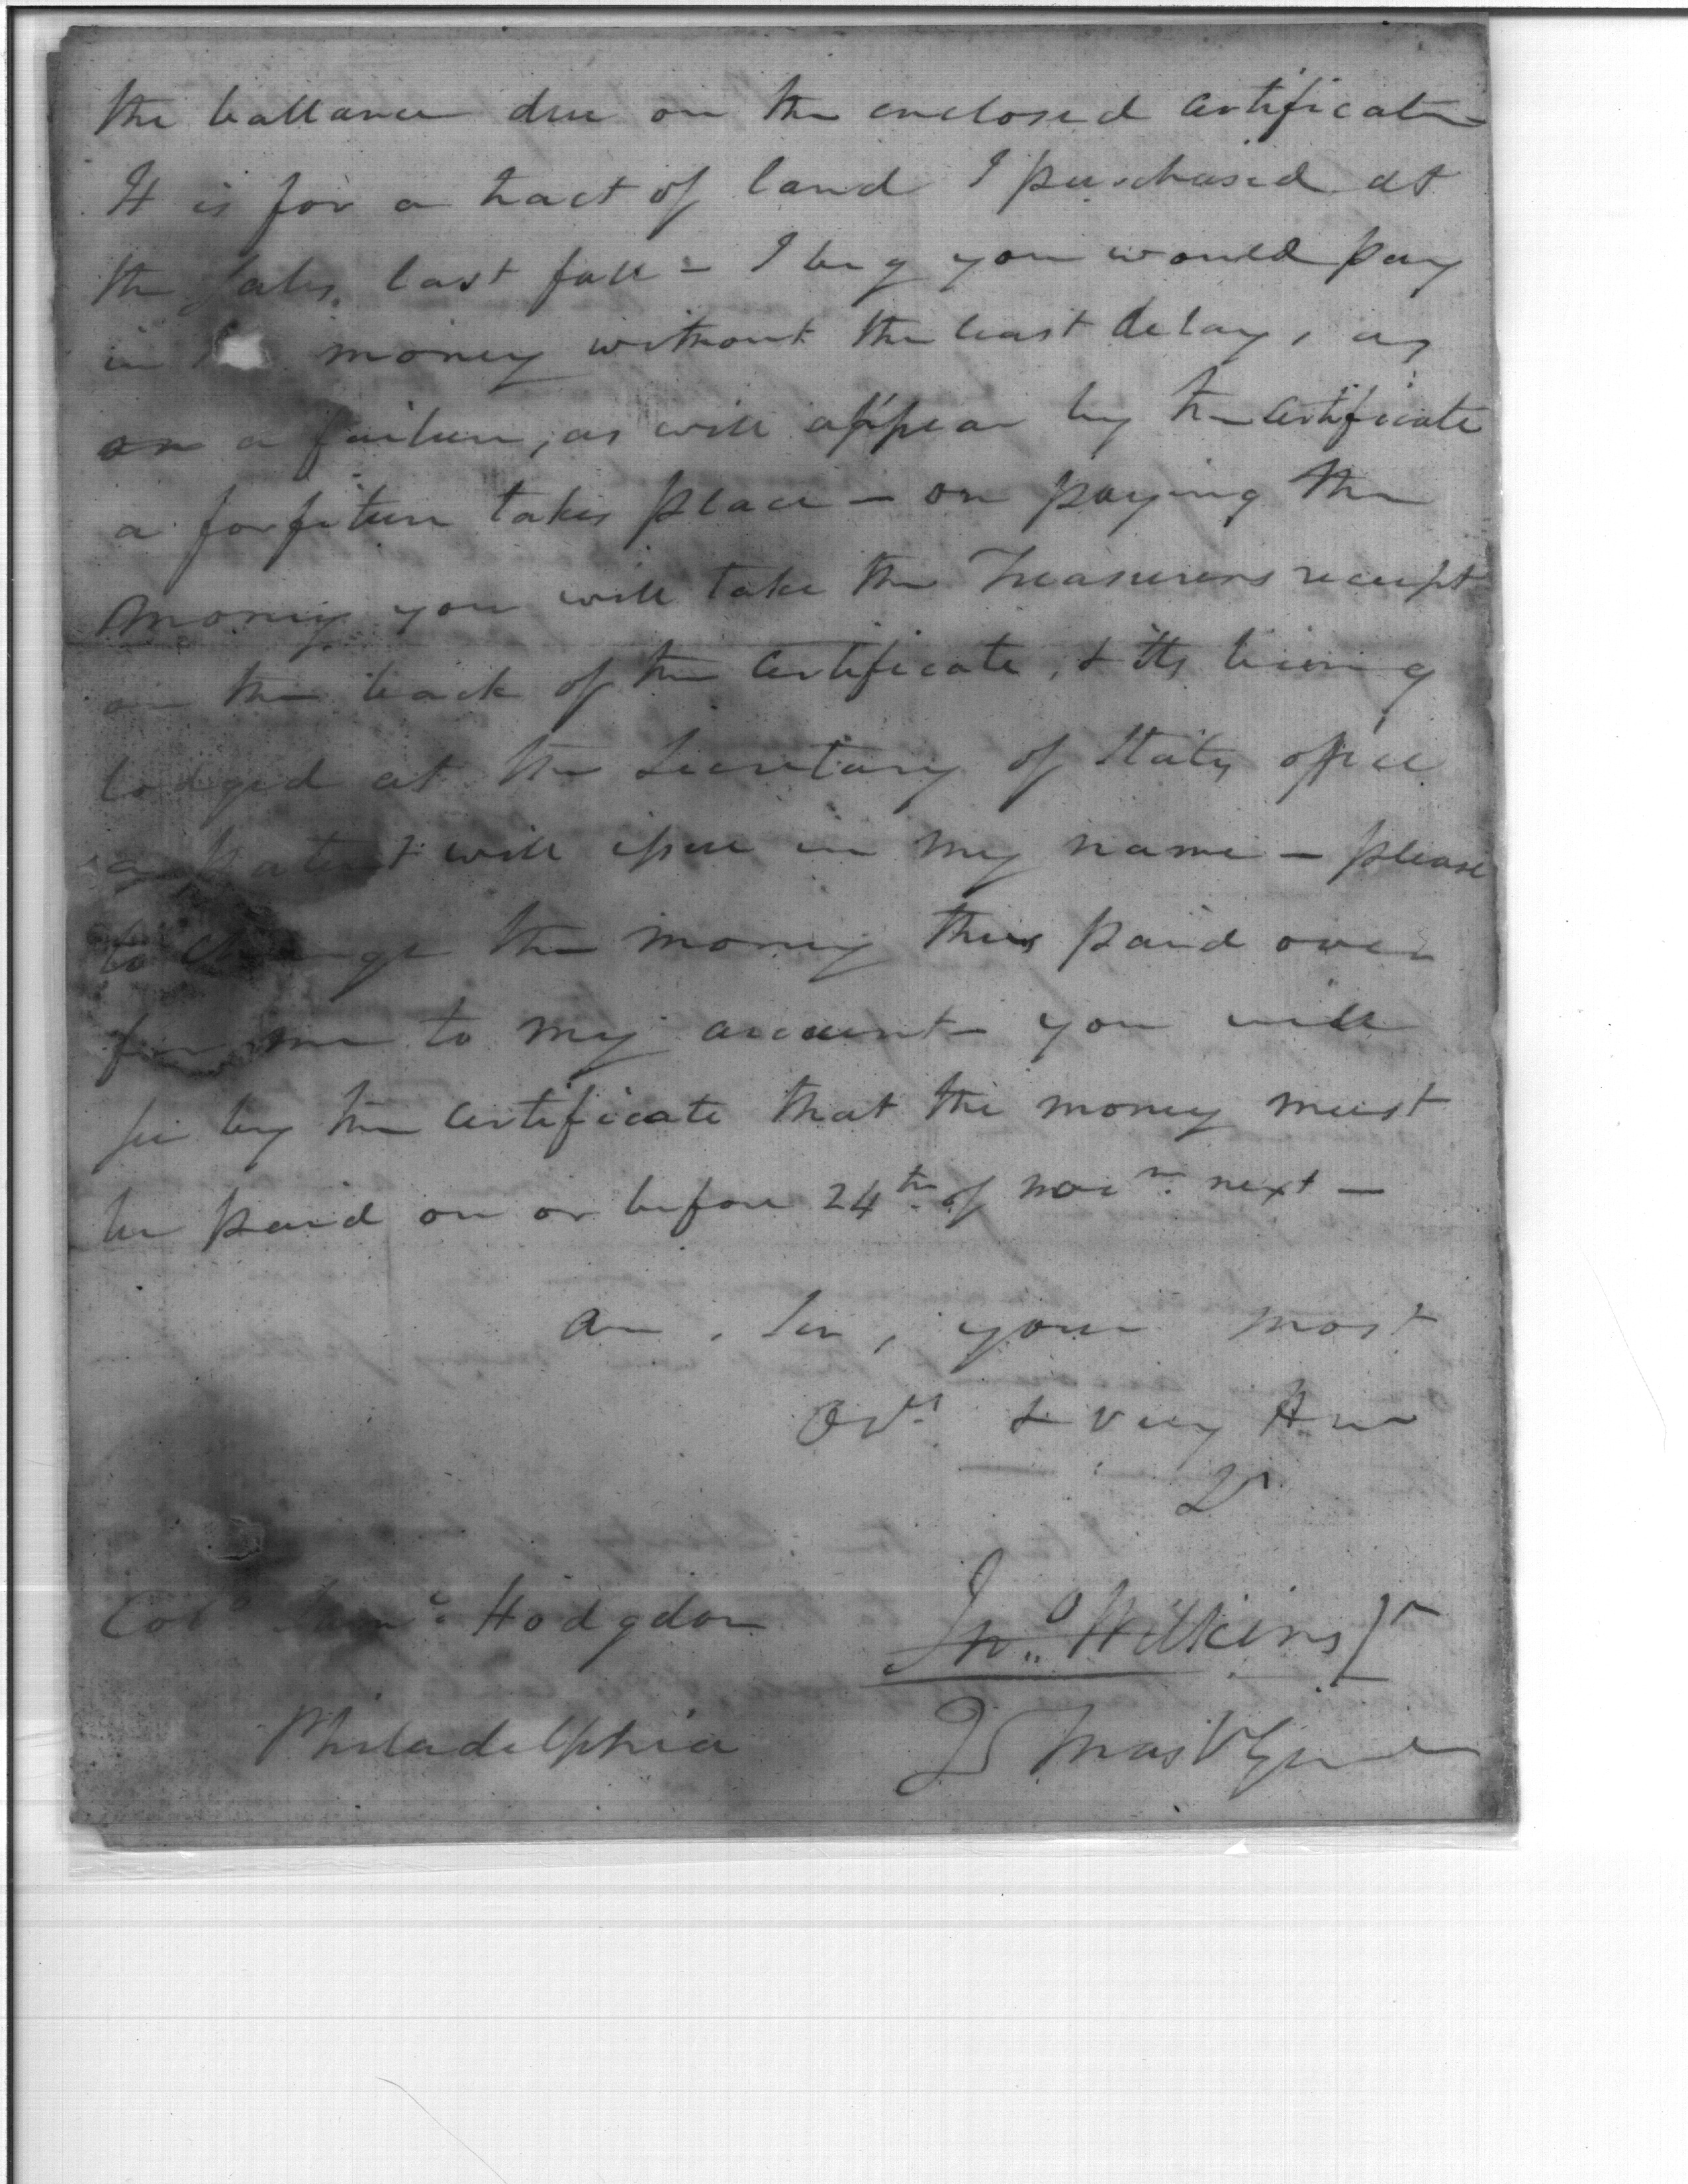 the ballance due on the enclosed certificate
It is for a tract of land I purchased at
the Sales, last fall - I beg you would pay
in money without the least delay, as
on a failure, as will appear by the certificate
a forfiture takes place - on paying the
money you will take the Treasurers receipt
on the back of the certificate, & its being
lodged at the Secretary of States office
a patent will issue in my name - please
to charge the money thus paid over
for me to my account - you will
see by the certificate that the money must
be paid on or before 24th of Novr. next -
am, Sir, your most
Obt. & very Hum
Sr
Colo. Saml. Hodgdon
Jno. Wilkins Jr
Philadelphia
Qr Mas Genl